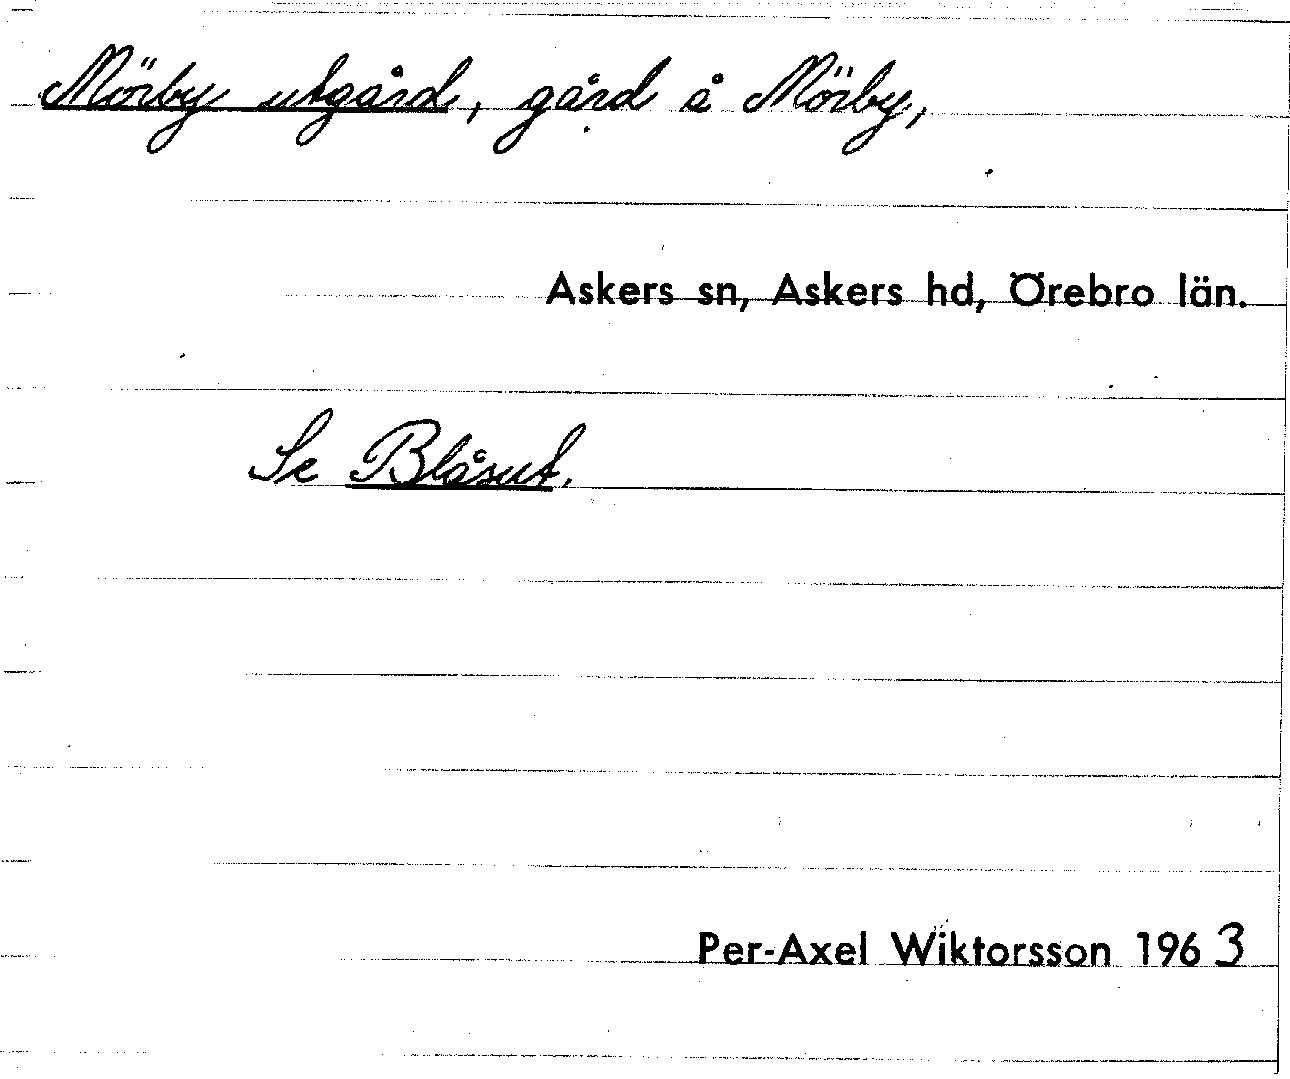 Mörby utgård, gård å Mörby,
Askers sn, Askers hd, Örebro län.
Se Blåsut.
Per-Axel Wiktorsson 1963